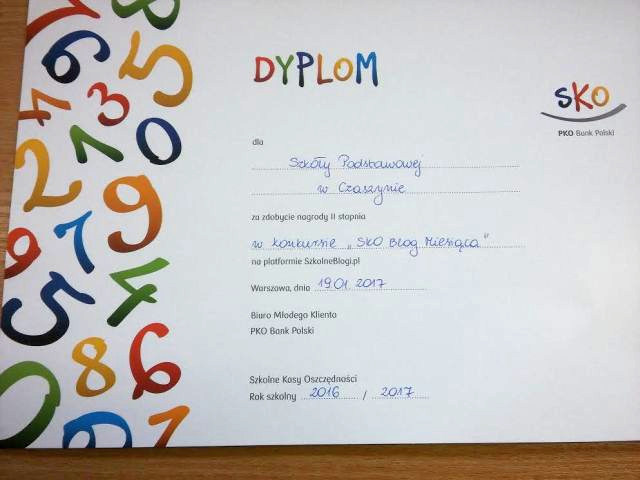 DYPLOM
SKO
PKO Bank Polski
dla
Szkoły Podstawowej
w Czaszynie
za zdobycie nagrody II stopnia
w konkursie „SKO Blog Miesiąca"
na platformie SzkolneBlogi.pl
Warszawa, dnia 19.01.2017
Biuro Młodego Klienta
PKO Bank Polski
Szkolne Kasy Oszczędności
Rok szkolny 2016 / 2017